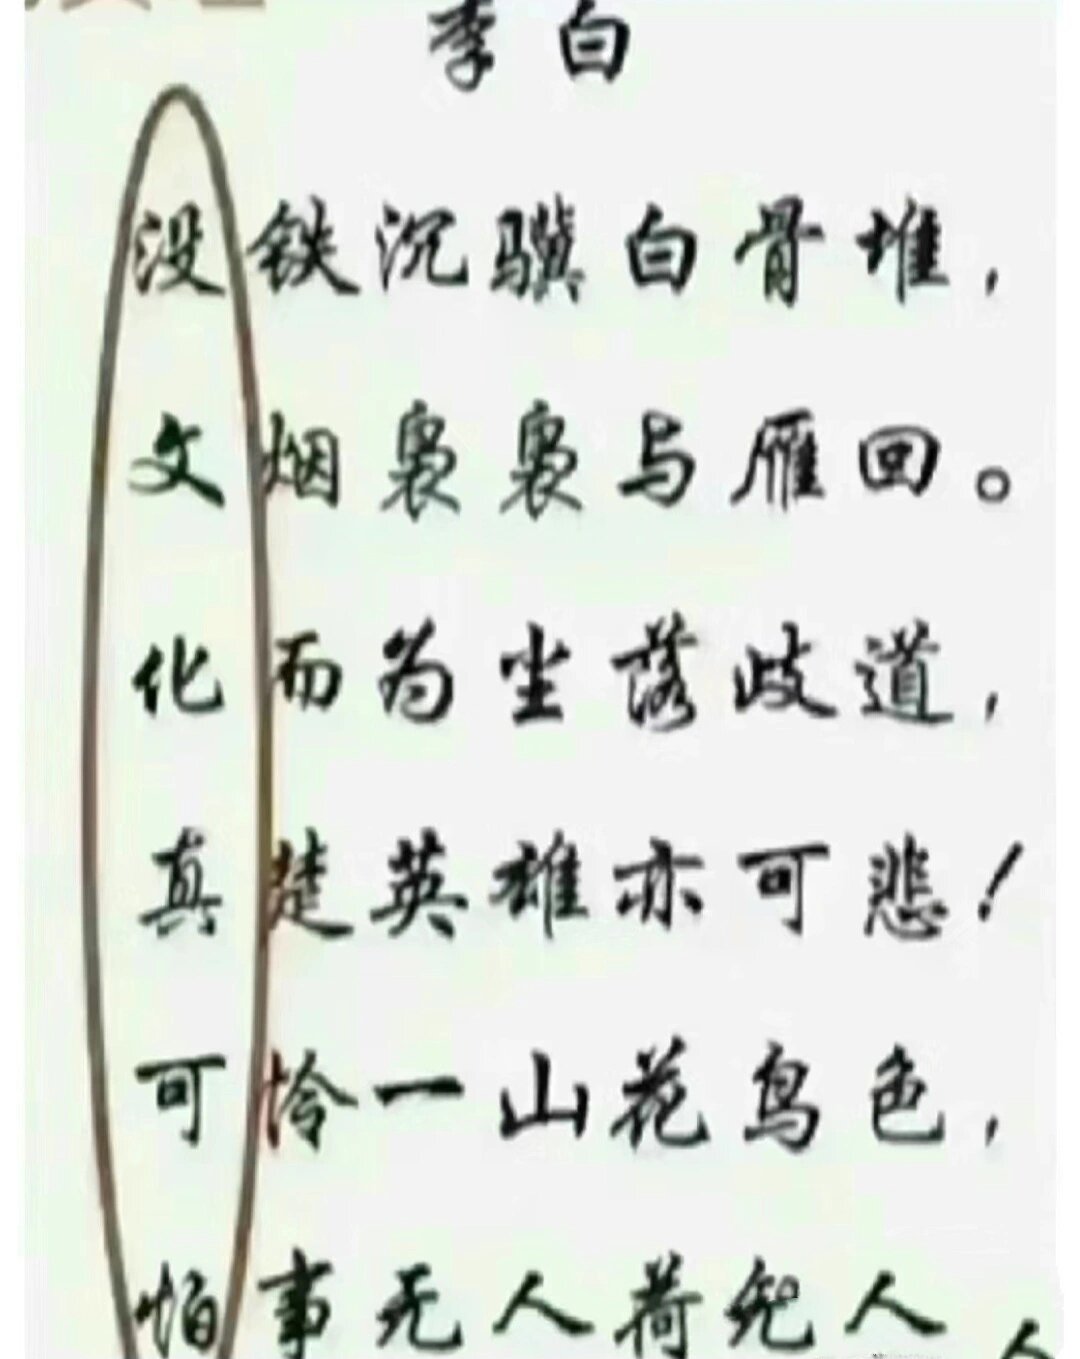 李白
没铁沉骥白骨堆，
文烟袅袅与雁回。
化而为坐落歧道，
真楚英雄亦可悲！
可怜一山花鸟色，
怕事无人荷锄人